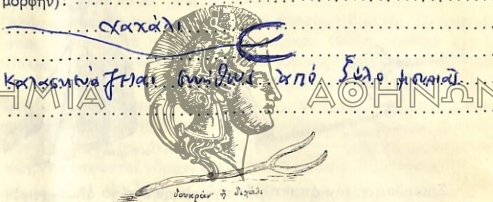 μορφήν).
χαχάλι
κατασκευάζεται συνήθως από ξύλο μουριάς
ΗΜΙΑ ΑΘΗΝΩΝ
δουκράν ἢ διχάλι